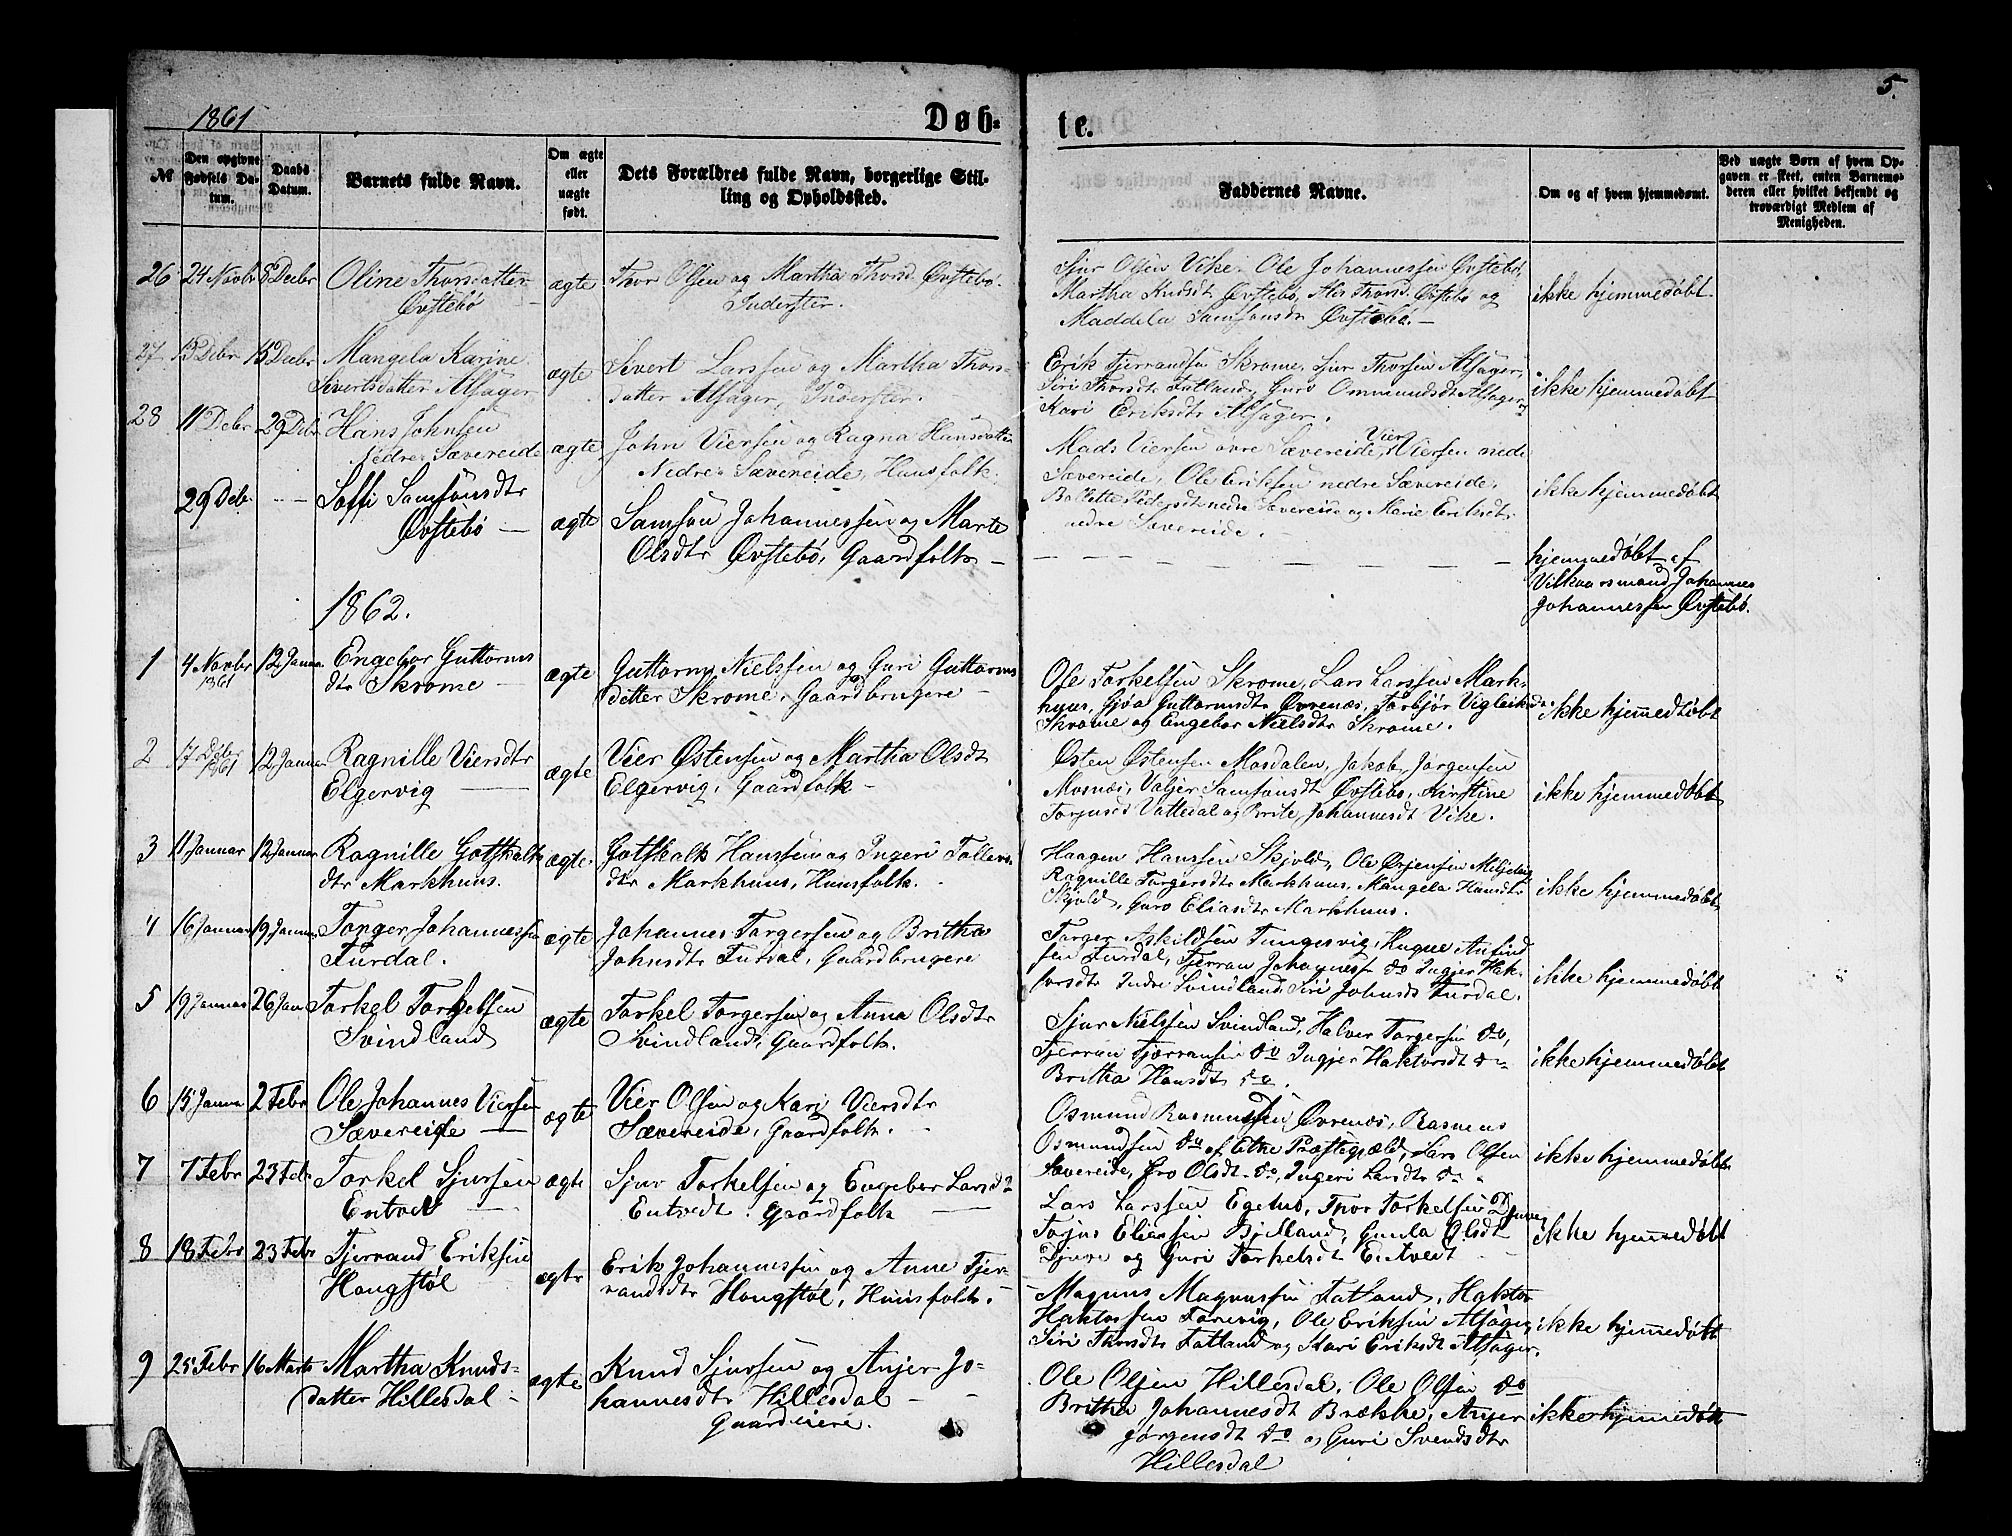 1861
Døb-
te.
5.
№
Den opgivne Fødsels Datum.
Daabs Datum.
Barnets fulde Navn.
Om ægte eller uægte født.
Dets Forældres fulde Navn, borgerlige Stilling og Opholdssted.
Faddernes Navne.
Om og af hvem hjemmedømt.
Ved uægte Børn af hvem Opgaven er skeet, enten Barnemoderen eller hvilket bekjendt og troværdigt Medlem af Menigheden.
26 24 Novbr 8 Decbr Oline Thorsdatter
Øvstebø
ægte
Thor Olsen og Martha Thorsd. Øvstebø.
Inderster.
Sjur Olsen Vike, Ole Johannessen Øvstebø,
Martha Knudsdt Øvstebø, Thorsd. Øvstebø og
Maddela Samsonsdtr Øvstebø.
ikke hjemmedøbt
27 13 Debr 15 Decbr Mangela Karine
Sivertsdatter Alsager
ægte
Sivert Larssen og Martha Thors-
datter Alsager, Inderster.
Erik Tjerrandsen Skrome, Sjur Thorsen Alsager,
Siri Thorsdt Fatland, Guro Ommundsdt Alsager,
Kari Eriksdtr Alsager.
ikke hjemmedøbt
28 11 Debr 29 Debr Hans Johnsen
Nedre Sævereide
ægte
John Viersen og Ragna Hansdatter
Nedre Sævereide, Huusfolk.
Mads Viersen øvre Sævereide, Vier Viersen nedre
Sævereide, Ole Eriksen nedre Sævereide,
Bollette Pedersdt nedre Sævereide og Marie Eriksdtr
nedre Sævereide.
ikke hjemmedøbt
29 Deb. Soffi Samsonsdtr
Øvstebø
ægte
Samson Johannessen og Marte
Olsdtr Øvstebø, Gaardfolk
hjemmedøbt af
Vilkaarsmand Johannes
Johannessen Øvstebø.
1862.
1 4 Novbr 1861 12 Janua Engebor Guttorms
dtr Skrome
ægte
Guttorm Nielssen og Guri Guttorms
datter Skrome, Gaardbrugere
Ole Torkelsen Skrome, Lars Larssen Mark-
huus, Gjøa Guttormsdtr Øvrenæs, Torbjør Vigleiksd
Skrome og Engebor Nielsdtr Skrome.
ikke hjemmedøbt
2 17 Debr 1861 12 Janua Ragnille Viersdtr
Elgervig
ægte
Vier Østensen og Martha Olsdt
Elgervig, Gaardfolk
Østen Østensen Mosdalen, Jakob Jørgensen
Mosnæs, Valjer Samsonsdt Øvstebø, Kirstine
Torjusd Vattedal og Brite Johannesdt Vike.
ikke hjemmedøbt
3 11 Januar 12 Januar Ragnille Gotskalk
dtr Markhuus.
ægte
Gotskalk Hanssen og Ingeri Tollevs
dtr Markhuus, Huusfolk.
Haagen Hanssen Skjold, Ole Ørjensen
Ragnille Torgersdtr Markhuus, Mangela Hansdtr
Skjold, Guro Eliasdtr Markhuus.
ikke hjemmedøbt
4 16 Januar 19 Januar Torger Johannessen
Furdal.
ægte
Johannes Torgersen og Britha
Johnsdtr Furdal, Gaardbrugere
Torger Askildsen Tungesvig, Haque Anfind
sen Furdal, Tjerran Johannessen do Ingjer Hak-
torsdtr Indre Svindland, Siri Johnsdt Furdal.
ikke hjemmedøbt
5 19 Januar 26 Jan Torkel Torkelsen
Svindland
ægte
Torkel Torgersen og Anna Olsdtr
Svindland, Gaardfolk.
Sjur Nielssen Svindland, Halvor Torgersen do,
Tjerran Tjerransen do Ingjer Haktorsdt do
Britha Hansdt do.
ikke hjemmedøbt
6 15 Janua 2 Febr Ole Johannes Viersen
Sævereide
ægte
Vier Olsen og Kari Viersdtr
Sævereide, Gaardfolk.
Osmund Rasmussen Øvrenæs, Rasmus
Osmundsen do af Etne Præstegjæld, Lars Olsen
Sævereide, Gro Olsdt do, Ingeri Larsdt do
ikke hjemmedøbt
7 7 Febr 23 Febr Torkel Sjursen
Entvet
ægte
Sjur Torkelsen og Engebor Larsdt
Entvedt. Gaardfolk
Lars Larssen Egenes, Thor Torkelsen Djuve,
Torjus Eliassen Bjelland, Gunla Olsdt
Djuve og Guri Torkelsdt Entvedt
ikke hjemmedøbt
8 18 Febr 23 Febr Tjerrand Eriksen
Hongstøl
ægte
Erik Johannessen og Anne Tjer-
randsdtr Hongstøl, Huusfolk.
Magnus Magnussen Fatland, Haktor
Haktorsen Torevig, Ole Eriksen Alsager,
Siri Thorsdt Fatland og Kari Eriksdt Alsager.
ikke hjemmedøbt
9 25 Febr 16 Marts Martha Knuds-
datter Hillesdal
ægte
Knud Sjursen og Anjer Jo-
hannesdtr Hillesdal
Gaardeiere.
Ole Olsen Hillesdal, Ole Olsen do
Britha Johannesdt Brække, Anjer
Jørgensdt do og Guri Svendsdtr
Hillesdal
ikke hjemmedøbt